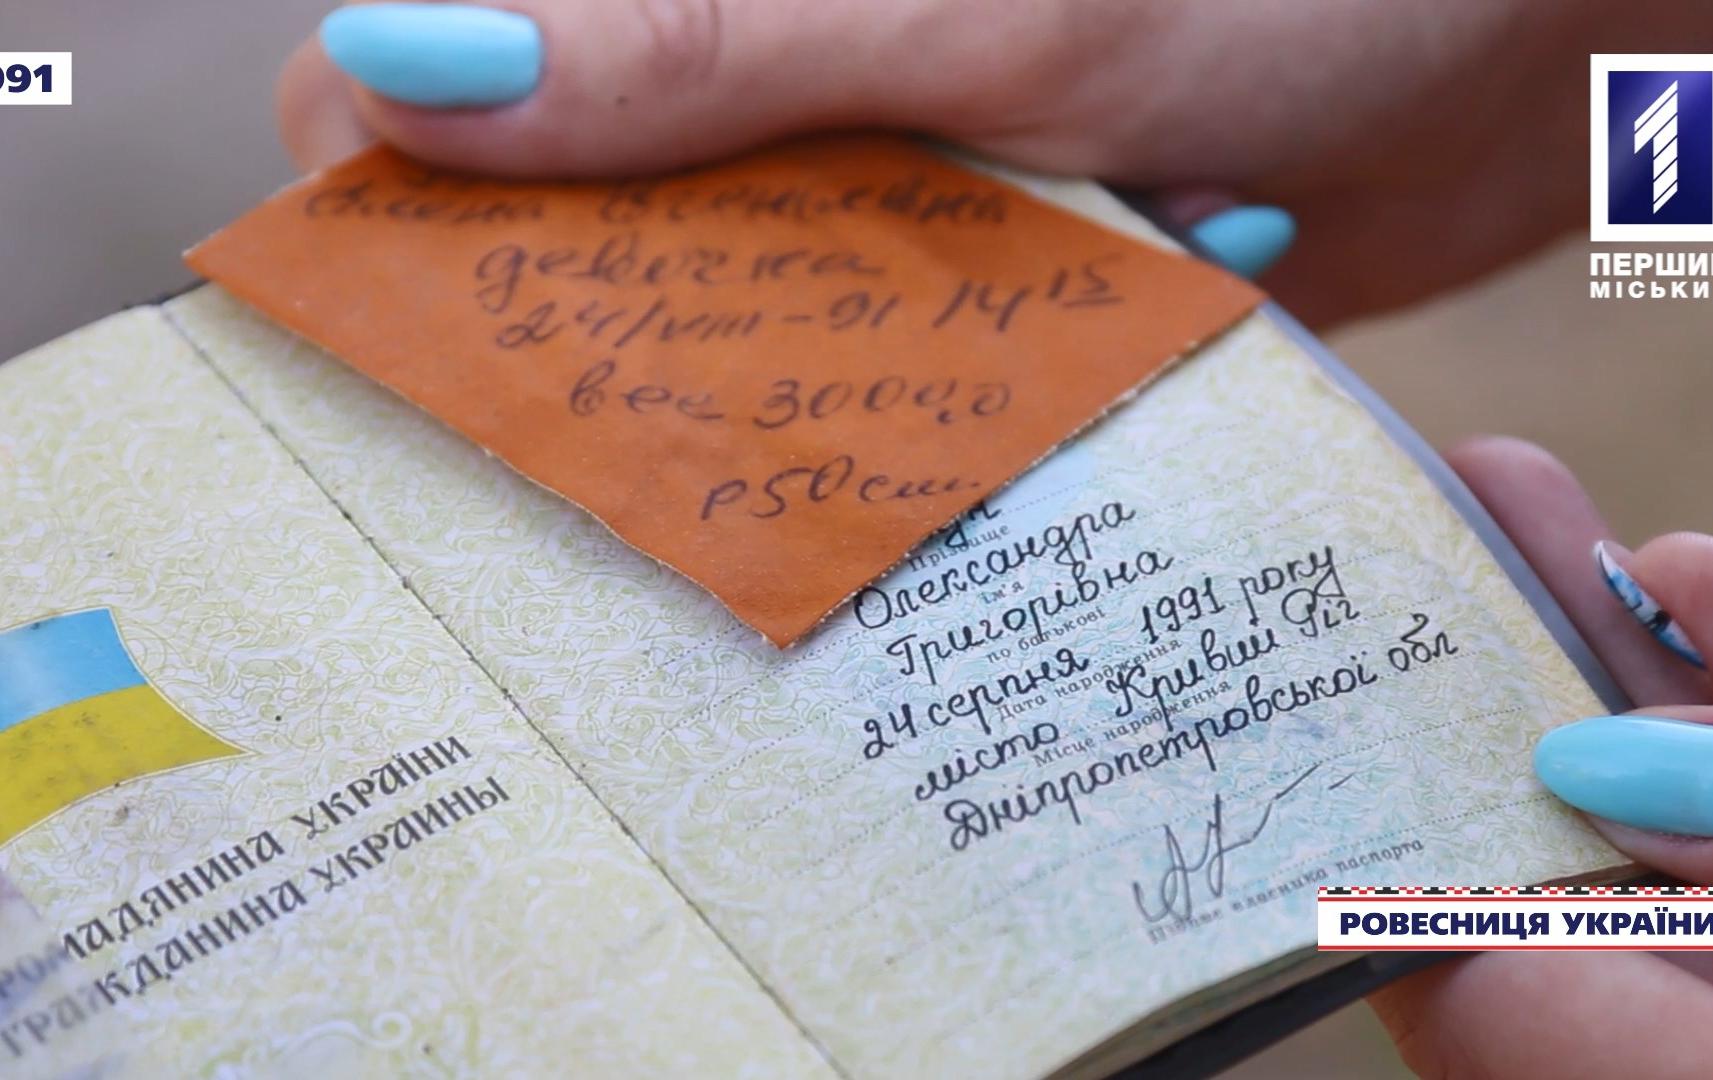 991
ПЕРШИЙ
МІСЬКИ
Евгеньевна
девочка
24/VIII-91 14 15
вес 3000,0
р 50 см.
Прізвище
Олександра
ім'я
Григорівна
по батькові
24 серпня 1991 року
Дата народження
місто Кривий Ріг
Місце народження
Дніпропетровської обл
Підпис власника паспорта
РОМАДЯНИНА УКРАЇНИ
ГРАЖДАНИНА УКРАИНЫ
РОВЕСНИЦЯ УКРАЇНИ